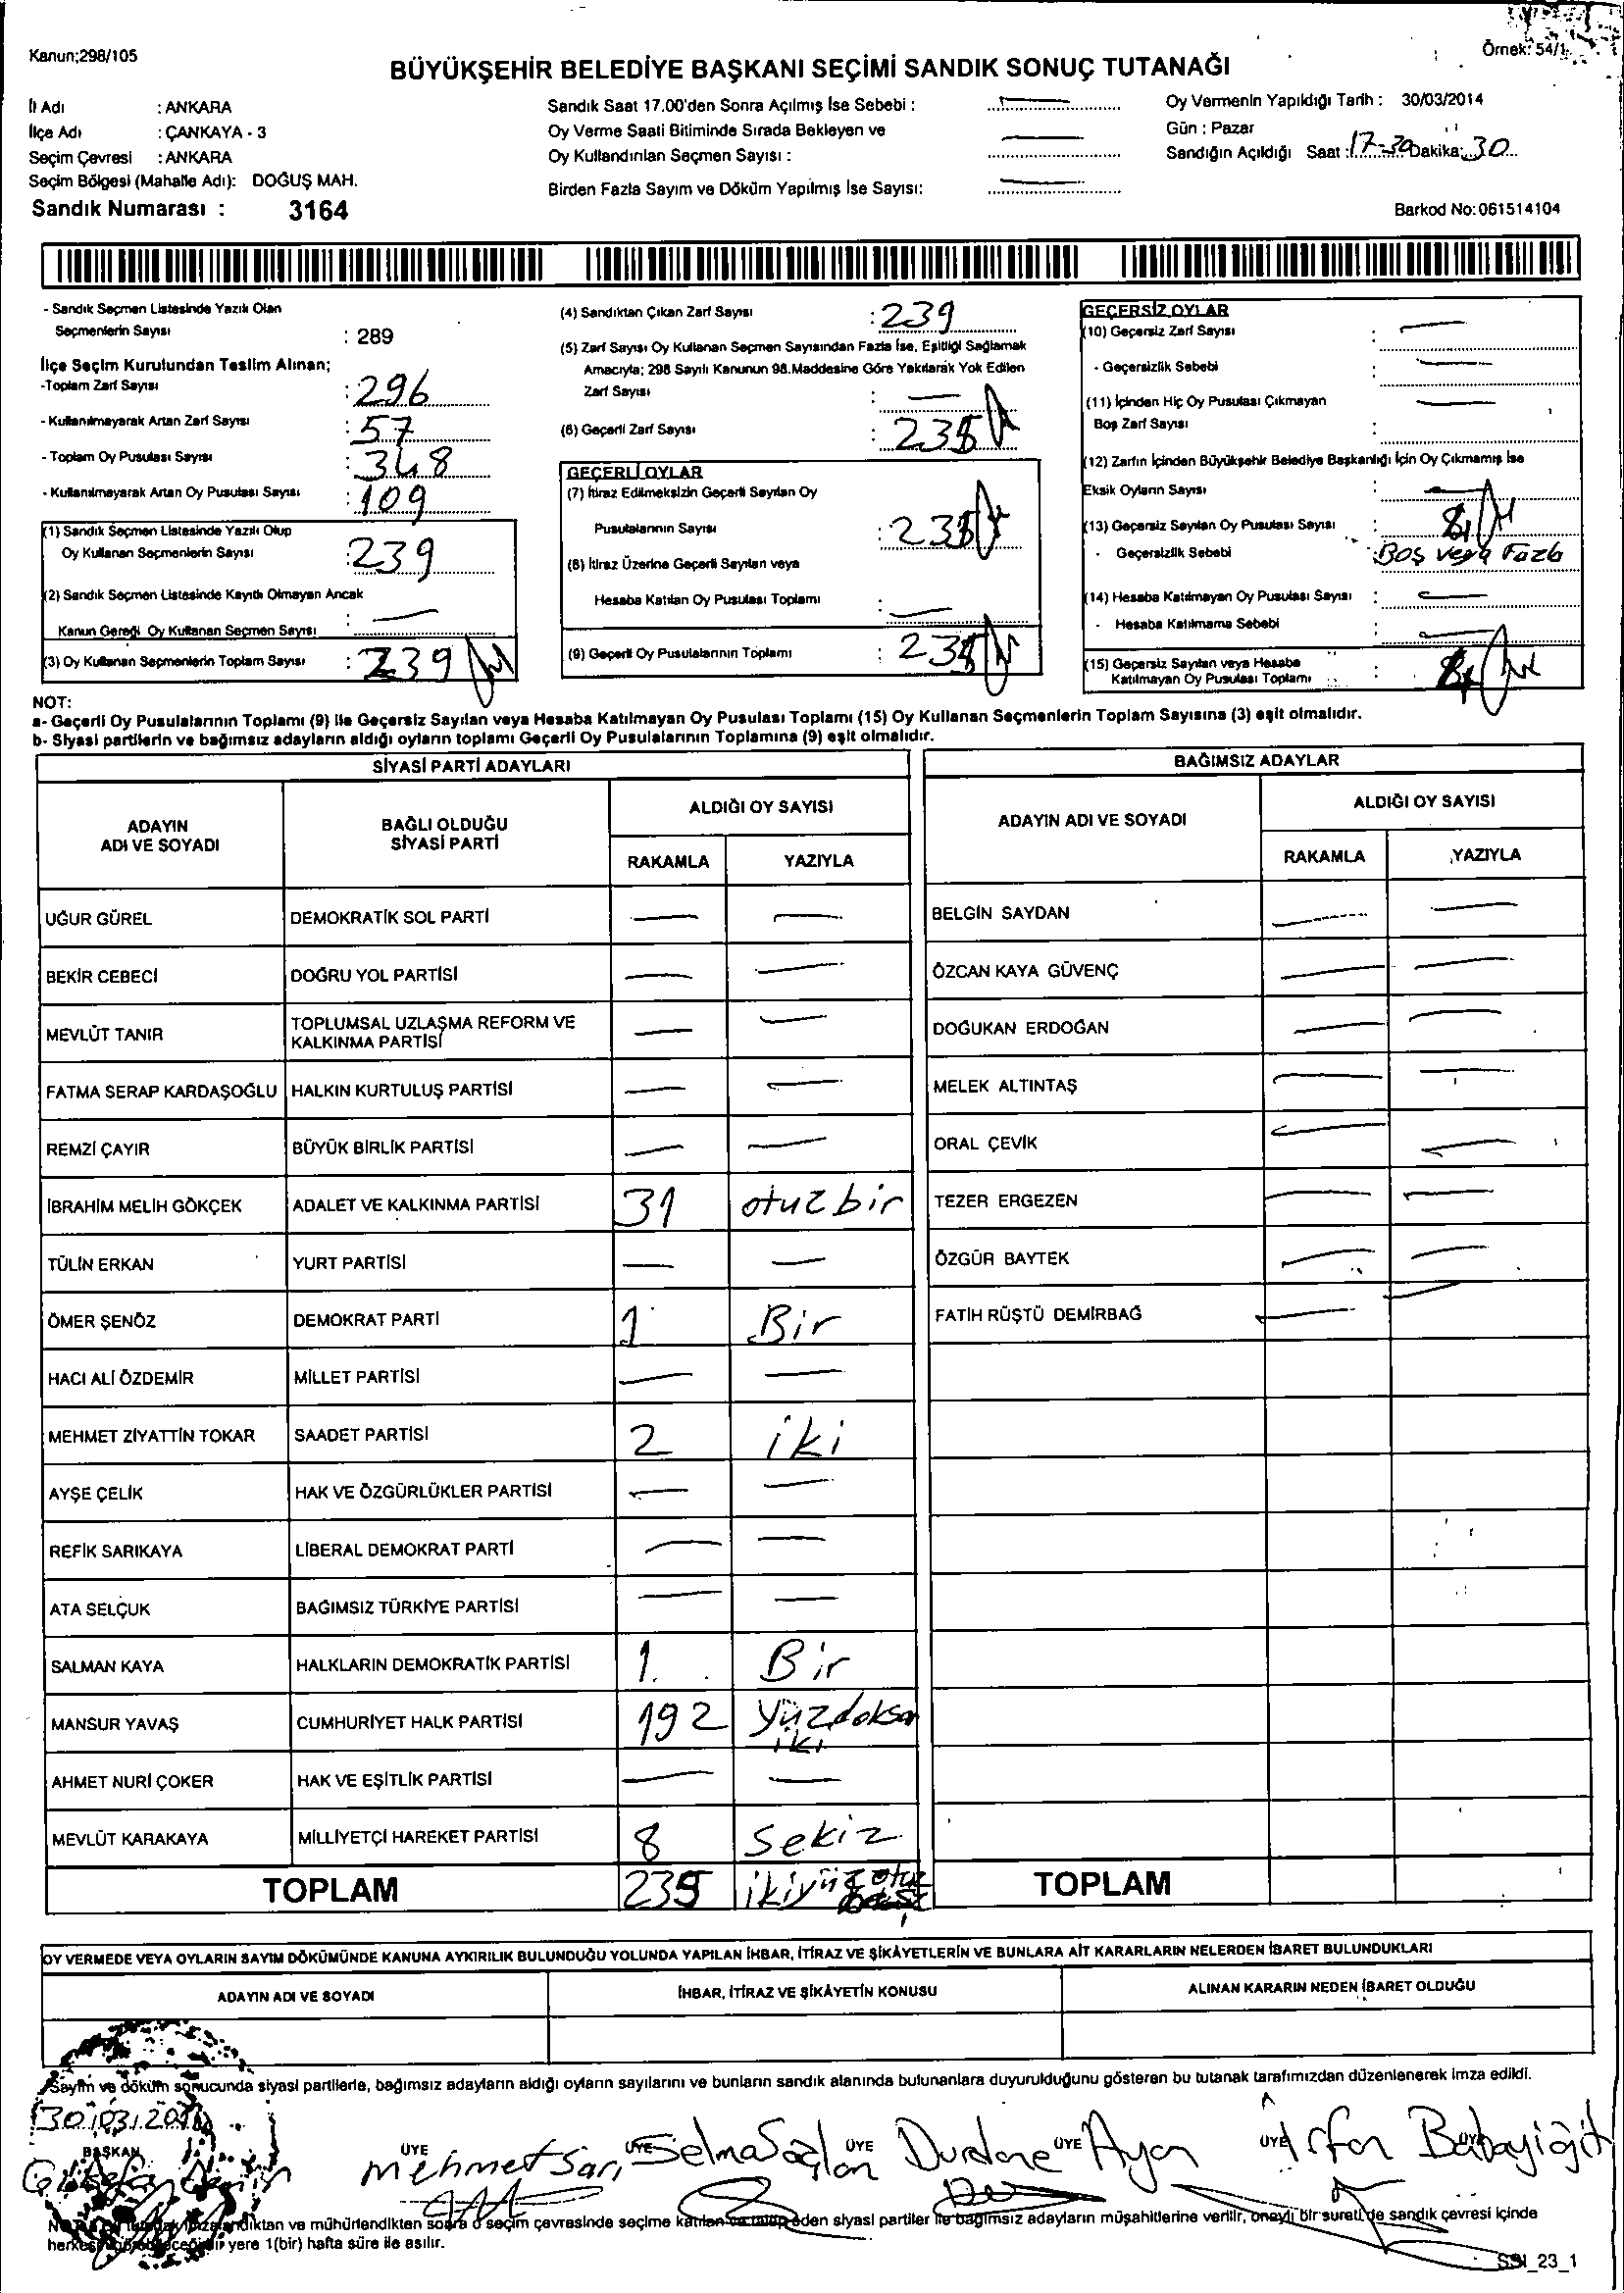 Kanun;298/105
Örnek: 54/1
BÜYÜKŞEHİR BELEDİYE BAŞKANI SEÇİMİ SANDIK SONUÇ TUTANAĞI
İl Adı : ANKARA
İlçe Adı : ÇANKAYA - 3
Seçim Çevresi : ANKARA
Seçim Bölgesi (Mahalle Adı): DOĞUŞ MAH.
Sandık Numarası : 3164
Sandık Saat 17.00'den Sonra Açılmış İse Sebebi :
Oy Verme Saati Bitiminde Sırada Bekleyen ve
Oy Kullandırılan Seçmen Sayısı :
Birden Fazla Sayım ve Döküm Yapılmış İse Sayısı:
Oy Vermenin Yapıldığı Tarih : 30/03/2014
Gün : Pazar
Sandığın Açıldığı Saat : 17-30 Dakika: 30
Barkod No:061514104
- Sandık Seçmen Listesinde Yazılı Olan
Seçmenlerin Sayısı : 289
İlçe Seçim Kurulundan Teslim Alınan;
-Toplam Zarf Sayısı : 296
- Kullanılmayarak Artan Zarf Sayısı : 57
- Toplam Oy Pusulası Sayısı : 348
- Kullanılmayarak Artan Oy Pusulası Sayısı : 109
(1) Sandık Seçmen Listesinde Yazılı Olup
Oy Kullanan Seçmenlerin Sayısı : 239
(2) Sandık Seçmen Listesinde Kayıtlı Olmayan Ancak
Kanun Gereği Oy Kullanan Seçmen Sayısı :
(3) Oy Kullanan Seçmenlerin Toplam Sayısı : 239
(4) Sandıktan Çıkan Zarf Sayısı : 239
(5) Zarf Sayısı Oy Kullanan Seçmen Sayısından Fazla İse, Eşitliği Sağlamak
Amacıyla; 298 Sayılı Kanunun 98.Maddesine Göre Yakılarak Yok Edilen
Zarf Sayısı :
(6) Geçerli Zarf Sayısı : 235
GEÇERLİ OYLAR
(7) İtiraz Edilmeksizin Geçerli Sayılan Oy
Pusulalarının Sayısı : 235
(8) İtiraz Üzerine Geçerli Sayılan veya
Hesaba Katılan Oy Pusulası Toplamı :
(9) Geçerli Oy Pusulalarının Toplamı : 235
GEÇERSİZ OYLAR
(10) Geçersiz Zarf Sayısı :
- Geçersizlik Sebebi :
(11) İçinden Hiç Oy Pusulası Çıkmayan
Boş Zarf Sayısı :
(12) Zarfın İçinden Büyükşehir Belediye Başkanlığı İçin Oy Çıkmamış İse
Eksik Oyların Sayısı :
(13) Geçersiz Sayılan Oy Pusulası Sayısı :
- Geçersizlik Sebebi : Boş veya Fazla
(14) Hesaba Katılmayan Oy Pusulası Sayısı :
- Hesaba Katılmama Sebebi :
(15) Geçersiz Sayılan veya Hesaba
Katılmayan Oy Pusulası Toplamı :
NOT:
a- Geçerli Oy Pusulalarının Toplamı (9) ile Geçersiz Sayılan veya Hesaba Katılmayan Oy Pusulası Toplamı (15) Oy Kullanan Seçmenlerin Toplam Sayısına (3) eşit olmalıdır.
b- Siyasi partilerin ve bağımsız adayların aldığı oyların toplamı Geçerli Oy Pusulalarının Toplamına (9) eşit olmalıdır.
SİYASİ PARTİ ADAYLARI
ADAYIN ADI VE SOYADI
BAĞLI OLDUĞU SİYASİ PARTİ
ALDIĞI OY SAYISI
RAKAMLA YAZIYLA
UĞUR GÜREL DEMOKRATİK SOL PARTİ
BEKİR CEBECİ DOĞRU YOL PARTİSİ
MEVLÜT TANIR TOPLUMSAL UZLAŞMA REFORM VE
KALKINMA PARTİSİ
FATMA SERAP KARDAŞOĞLU HALKIN KURTULUŞ PARTİSİ
REMZİ ÇAYIR BÜYÜK BİRLİK PARTİSİ
İBRAHİM MELİH GÖKÇEK ADALET VE KALKINMA PARTİSİ 31 otuzbir
TÜLİN ERKAN YURT PARTİSİ
ÖMER ŞENÖZ DEMOKRAT PARTİ 1 Bir
HACI ALİ ÖZDEMİR MİLLET PARTİSİ
MEHMET ZİYATTİN TOKAR SAADET PARTİSİ 2 iki
AYŞE ÇELİK HAK VE ÖZGÜRLÜKLER PARTİSİ
REFİK SARIKAYA LİBERAL DEMOKRAT PARTİ
ATA SELÇUK BAĞIMSIZ TÜRKİYE PARTİSİ
SALMAN KAYA HALKLARIN DEMOKRATİK PARTİSİ 1 Bir
MANSUR YAVAŞ CUMHURİYET HALK PARTİSİ 192 yüzdoksan
iki
AHMET NURİ ÇOKER HAK VE EŞİTLİK PARTİSİ
MEVLÜT KARAKAYA MİLLİYETÇİ HAREKET PARTİSİ 8 sekiz
TOPLAM 235 ikiyüz otuz
beş
BAĞIMSIZ ADAYLAR
ADAYIN ADI VE SOYADI
ALDIĞI OY SAYISI
RAKAMLA YAZIYLA
BELGİN SAYDAN
ÖZCAN KAYA GÜVENÇ
DOĞUKAN ERDOĞAN
MELEK ALTINTAŞ
ORAL ÇEVİK
TEZER ERGEZEN
ÖZGÜR BAYTEK
FATİH RÜŞTÜ DEMİRBAĞ
TOPLAM
OY VERMEDE VEYA OYLARIN SAYIM DÖKÜMÜNDE KANUNA AYKIRILIK BULUNDUĞU YOLUNDA YAPILAN İHBAR, İTİRAZ VE ŞİKÂYETLERİN VE BUNLARA AİT KARARLARIN NELERDEN İBARET BULUNDUKLARI
ADAYIN ADI VE SOYADI
İHBAR, İTİRAZ VE ŞİKÂYETİN KONUSU
ALINAN KARARIN NEDEN İBARET OLDUĞU
Sayım ve döküm sonucunda siyasi partilerle, bağımsız adayların aldığı oyların sayılarını ve bunların sandık alanında bulunanlara duyurulduğunu gösteren bu tutanak tarafımızdan düzenlenerek imza edildi.
30/03/2014
BAŞKAN ÜYE ÜYE ÜYE ÜYE ÜYE ÜYE
Mehmet Sarı Selma Sağlan Durdane Ayan İrfan Babayiğit
imzalandıktan ve mühürlendikten sonra o seçim çevresinde seçime katılan ve talep eden siyasi partiler ile bağımsız adayların müşahitlerine verilir, onaylı bir sureti de sandık çevresi içinde
yere 1(bir) hafta süre ile asılır.
SSI_23_1